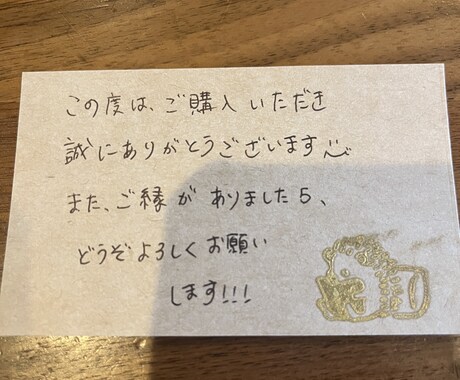 この度は、ご購入いただき
誠にありがとうございます
また、ご縁が ありましたら、
どうぞよろしくお願い
します!!!